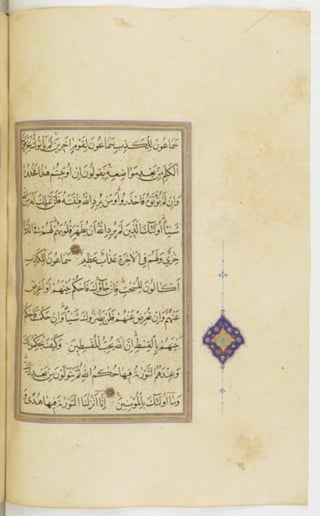 سماعون للكذب سماعون لقوم اخرين لم ياتوك يحرفون
الكلم من بعد مواضعه يقولون ان اوتيتم هذا فخذوه
وان لم تؤتوه فاحذروا ومن يرد الله فتنته فلن تملك له من الله
شيئا اولئك الذين لم يرد الله ان يطهر قلوبهم لهم في الدنيا
خزي ولهم في الاخرة عذاب عظيم سماعون للكذب
اكالون للسحت فان جاؤك فاحكم بينهم او اعرض
عنهم وان تعرض عنهم فلن يضروك شيئا وان حكمت فاحكم
بينهم بالقسط ان الله يحب المقسطين وكيف يحكمونك
وعندهم التورية فيها حكم الله ثم يتولون من بعد ذلك
وما اولئك بالمؤمنين انا انزلنا التورية فيها هدى